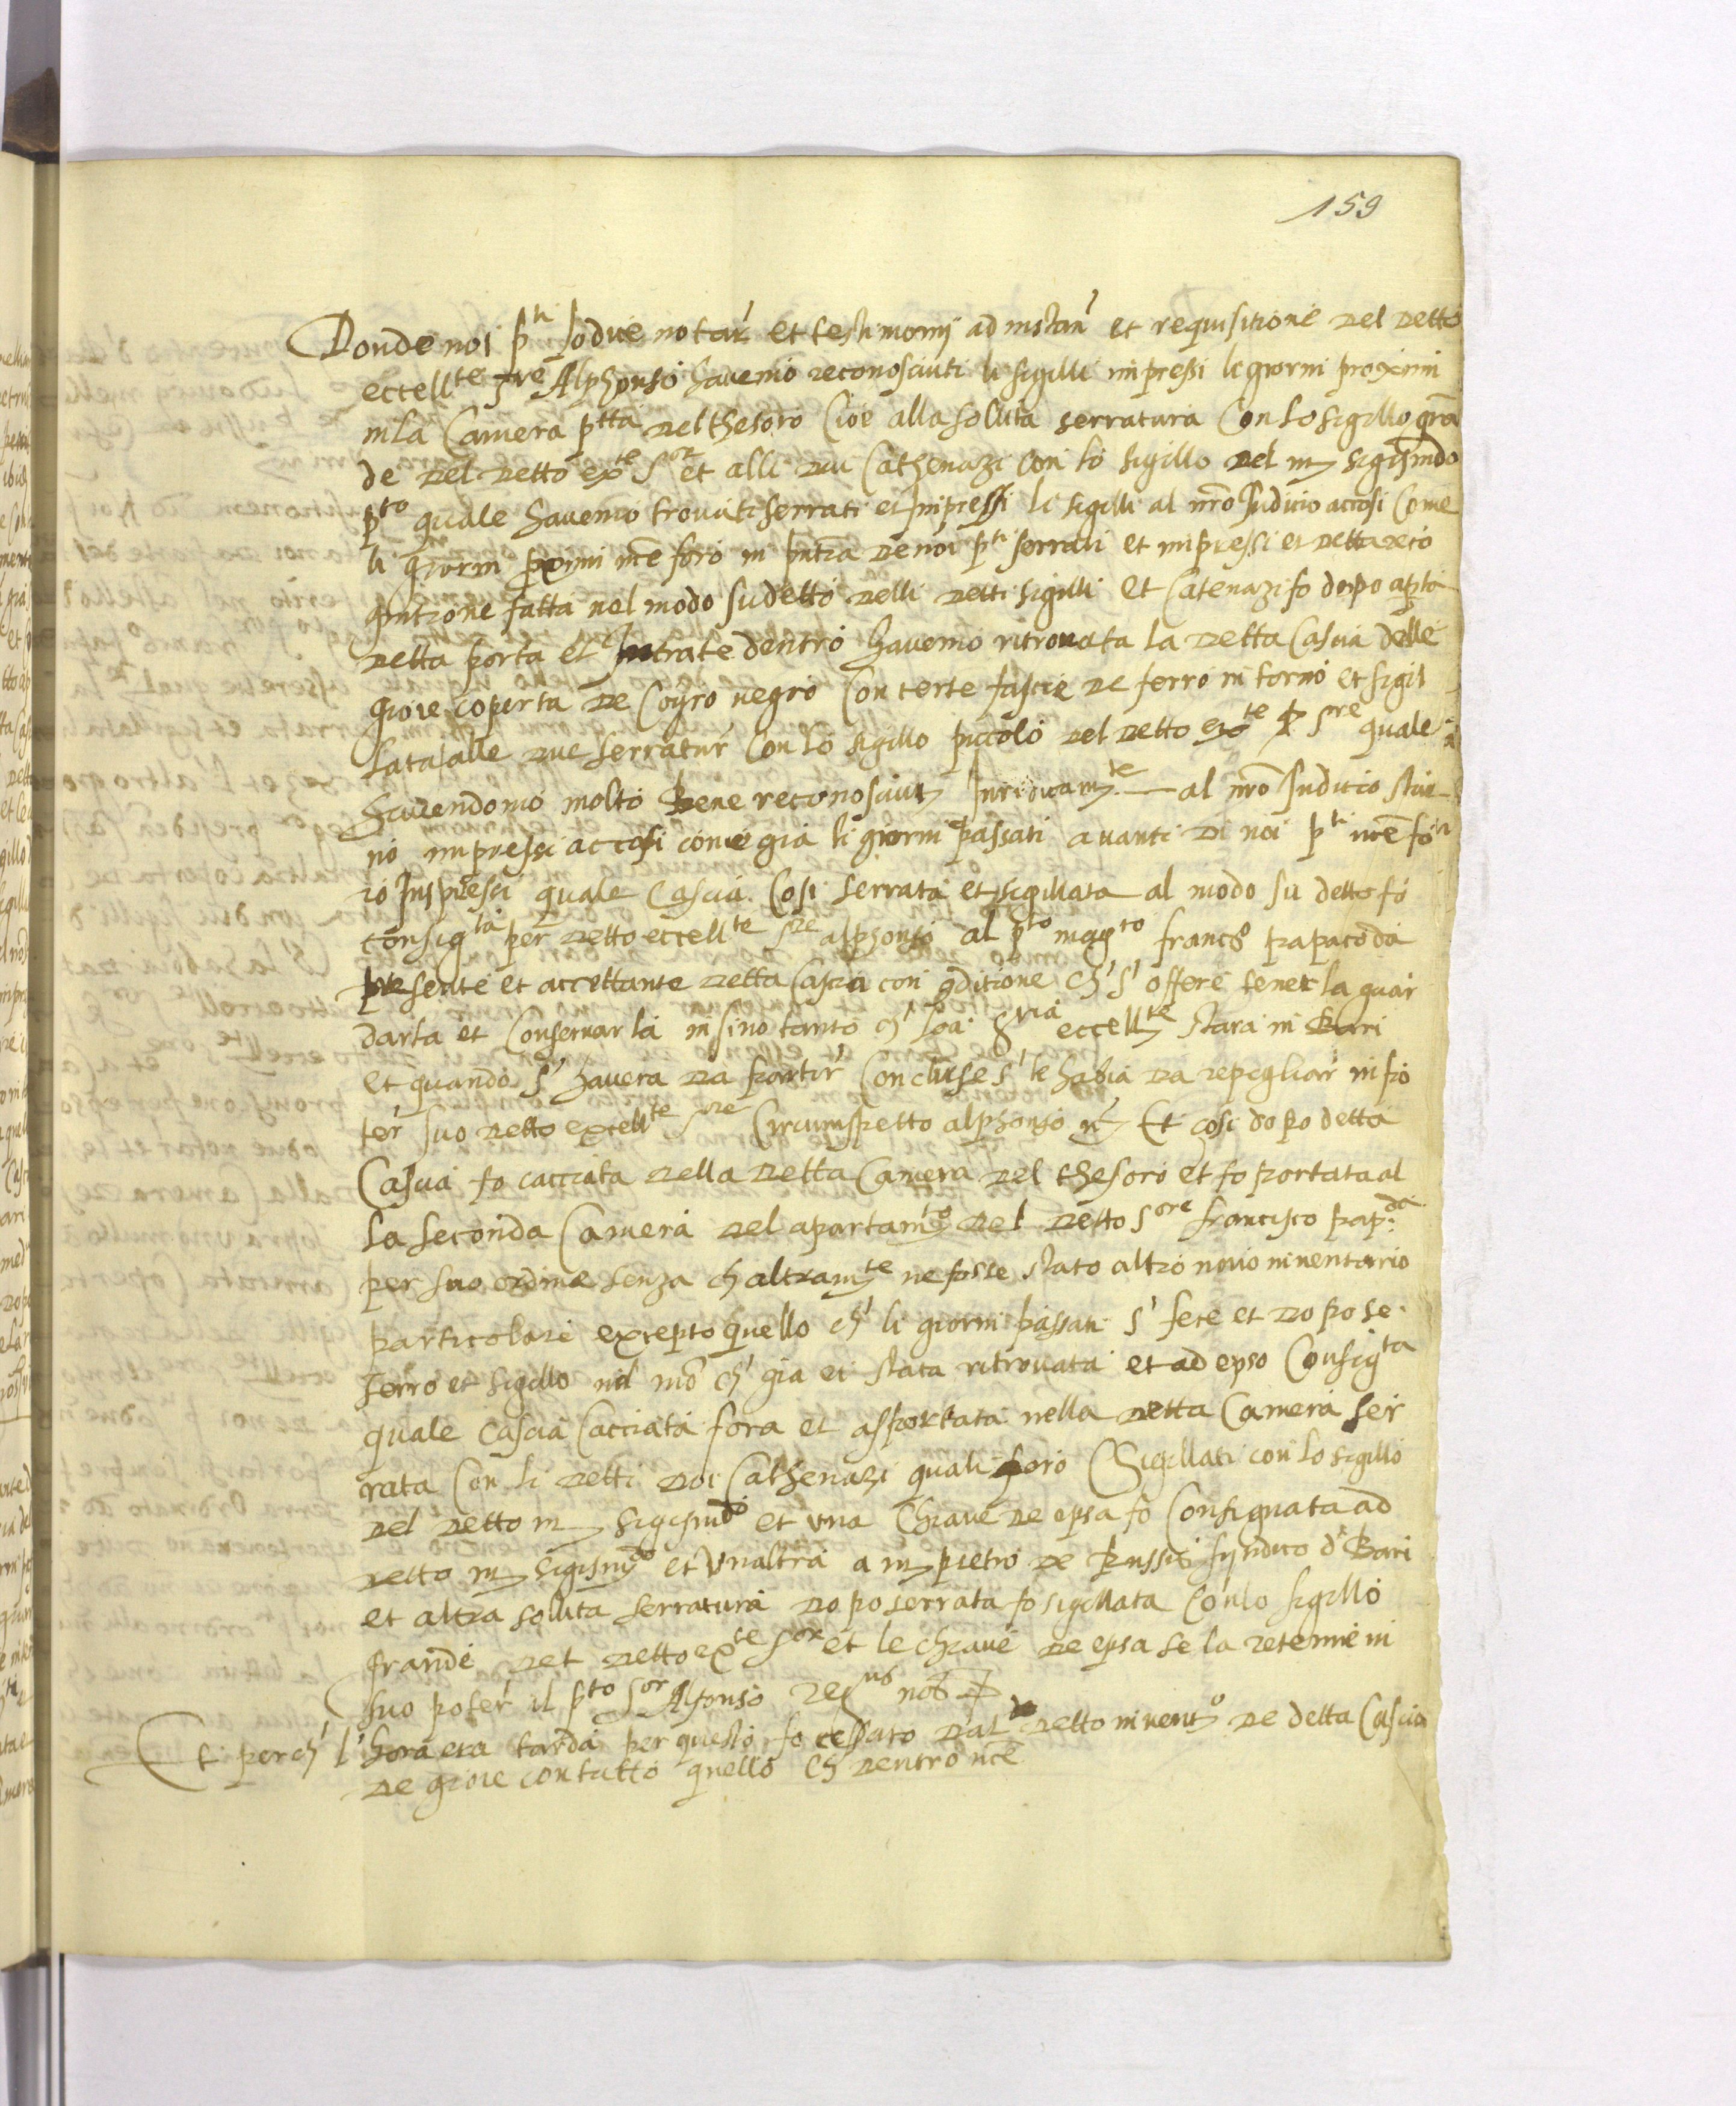 159
Donde noi p^ti Iodice notar' et testimonij ad instan' et requisitione del detto
eccell^te S^re Alphonso havemo reconosciuti li sigilli impressi li giorni proximi
in la Camera p^tta del thesoro Cioè alla soluta serratura Con lo sigillo gra
de del detto ex^te S^or et alli dui Cathenazi con lo sigillo del m^ sigismdo
p^to quale havemo trovati serrati et Impressi li sigilli al nr̃o Iudicio accosi Come
li giorni p̱ximi nc̃e foro in pn̄tia de noi p^ti serrati et impressi et detta reco
gnitione fatta nel modo sudetto delli detti sigilli et Catenazi fo dopo apta
detta porta et Intrate dentro havemo ritrovata la detta Cascia delle
gioie coperta de Coyro negro Con certe fascie de ferro in torno et sigil
lata alle due serratur' con lo sigillo piccolo del detto ex^te S^re quale
havendono molto bene reconosciuti al nr̃o Iudicio stav-
no impressi accosi come già li giorni passati avanti di noi p^ti nc̃e fo
ro Impressi quale Cascia Cosi serrata et sigillata al modo su detto fo
consig^ta per detto eccell^te S^re alphonso al p^to mag^co franc^o papacoda
presente et accettante detta Cascia con 9ditione ch' s' offere tener la guar
darla et Conservarla insino tanto ch' soa S^ria eccell^te stara in Bari
et quando s' havera da partir' Concluse s' le habia da repegliar' in po
ter' suo detto excell^te S^re Circumspetto alphonso Et cosi dopo detta
Cascia fo cacciata della detta Camera del thesoro et fo portata al
la seconda Camera del apartam^to del detto S^ore francisco pap^da
per suo ordine senza ch altram^te ne fosse stato altro novo inventario
particolare excepto quello ch' li giorni passati s' fece et dopo se
serrò et sigillo nel mõ ch' già et stata ritrovata et ad epso Consig^ta
quale Cascia Cacciata fora et asportata nella detta Camera ser
rata Con li detti doi Cathenazi quali foro Sigillati con lo sigillo
del detto m^ sigismdo et una Chiave de epsa fo Consignata ad
detto m^ sigism^do et Un altra a m^ pietro de Russis syndico d' Bari
et altra soluta serratura dopo serrata fo sigillata Con lo sigillo
grande del detto ex^te S^or et le chiave de epsa se la retenne in
suo poter' il p^to S^or Alfonso
Et perch' l' hora era tarda per questo fo cessato dal detto invent^o de detta Cascia
de gioie con tutto quello ch dentro nc̃e